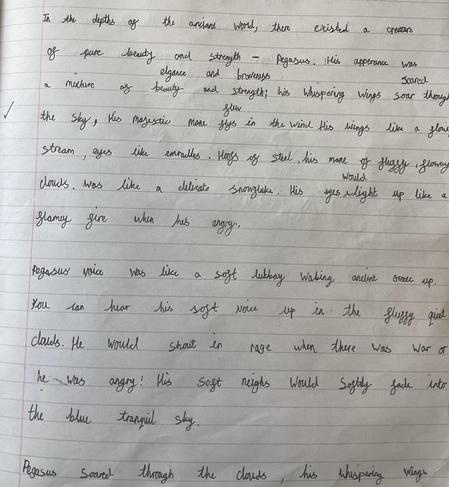 In the depths of the ancient world, there existed a creature
of pure beauty and strength - Pegasus. His apperance was
elgance and braveness. soared
a mixture of beauty and strength; his whispering wings soar through
flew
the sky, His majestic mane flys in the wind His wings like a flowing
stream, eyes like emralles. Hoofs of steel, his mane of fluffy, flowey
would
clouds. Was like a delicate snowflake. His eyes light up like a
flamey fire when hes angry.
Pegasus' voice was like a soft lubbay waking, up.
You can hear his soft voice up in the fluffy quiet
clouds. He would shout in rage when there was war or
he was angry! His soft neighs would softly fade into
the blue tranquil sky.
Pegasus soared through the clouds, his whispering wings